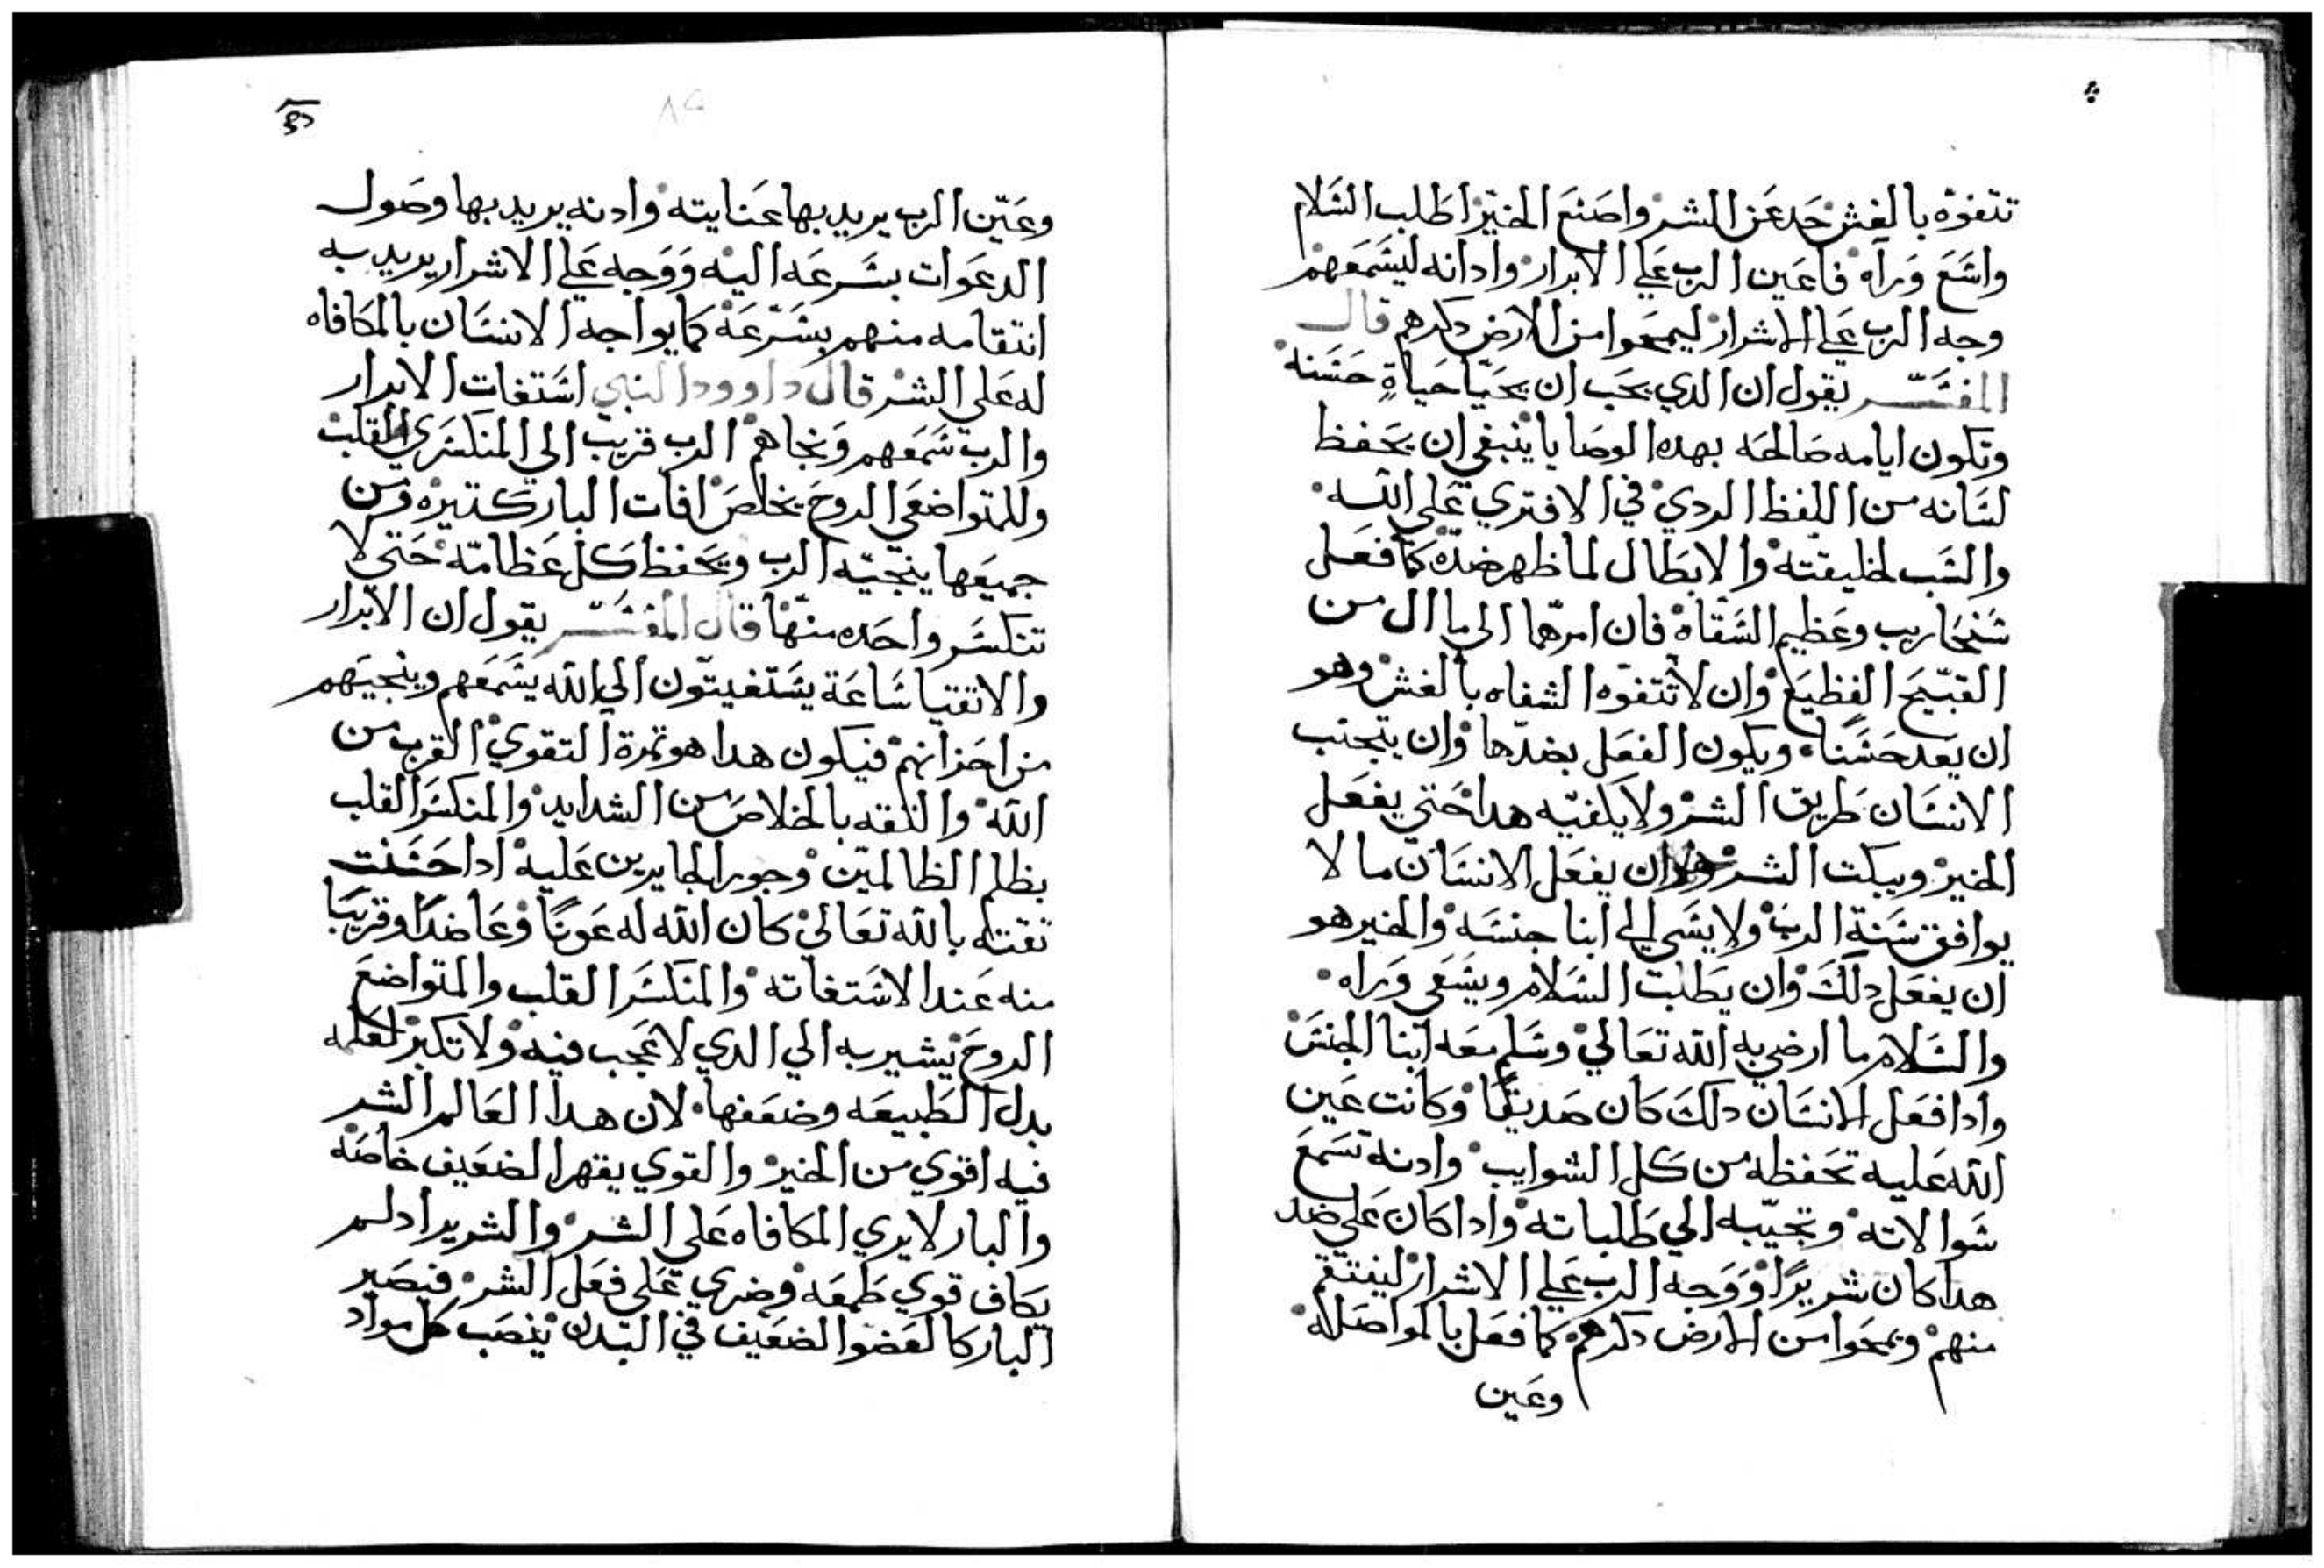 تتفوه بالغش حد عن الشر واصنع الخير اطلب السلام
واسع وراه فاعين الرب علي الابرار وادانه ليسمعهم
وجه الرب علي الاشرار ليمحوا من الارض دكرهم قال
المفسر يقول ان الدي يحب ان يحيا حياة حسنه
وتكون ايامه صالحه بهده الوصايا ينبغي ان يحفظ
لسانه من اللفظ الردي في الافتري علي الله
والسب لخليقته والابطال لما ظهر ضده كما فعل
سنحاريب وعظيم السقاة فان امرهما الي ما ال من
القبيح الفظيع وان لا تتفوه الشفاه بالغش وهو
ان يعد حسنا ويكون الفعل بضدها وان يتجنب
الانسان طريق الشر ولا يكفيه هدا حتي يفعل
الخير ويبكت الشر ان يفعل الانسان ما لا
يوافق سنة الرب ولا يسي الي ابنا جنسه والخير هو
ان يفعل دلك وان يطلب السلام ويسعي وراه
والسلام ما ارضي به الله تعالي وسلم معه ابنا الجنس
وادا فعل الانسان دلك كان صديقا وكانت عين
الله عليه تحفظه من كل الشوايب وادنه تسمع
سوالاته وتجيبه الي طلباته وادا كان علي ضد
هدا كان شريرا ووجه الرب علي الاشرار لينتقم
منهم ويمحوا من الارض دكرهم كما فعل بالمواصله
وعين
وعين الرب يريد بها عنايته وادنه يريد بها وصول
الدعوات بسرعه اليه ووجه علي الاشرار يريد به
انتقامه منهم بسرعه كما يواجه الانسان بالمكافاه
له علي الشر قال داوود النبي استغات الابرار
والرب سمعهم ونجاهم الرب قريب الي المنكسري القلب
وللمتواضعي الروح يخلص افات البار كتيره ومن
جميعها ينجيه الرب ويحفظ كل عظامه حتي لا
تنكسر واحده منها قال المفسر يقول ان الابرار
والاتقيا ساعة يستغيتون الي الله يسمعهم وينجيهم
من احزانهم فيكون هدا هو تمرة التقوي القرب من
الله والتقه بالخلاص من الشدايد والمنكسر القلب
بظلم الظالمين وجور الجايرين عليه ادا حسنت
تقته بالله تعالي كان الله له عونا وعاضدا وقريبا
منه عند الاستغاته والمنكسر القلب والمتواضع
الروح يشير به الي الدي لا عجب فيه ولا تكبر لعلمه
بدل الطبيعه وضعفها لان هدا العالم الشر
فيه اقوي من الخير والقوي يقهر الضعيف خاصه
والبار لا يري المكافاه علي الشر والشرير ادلم
يكاف قوي طمعه وضري علي فعل الشر فيصير
البار كالعضوا الضعيف في البدن ينصب كل مواد